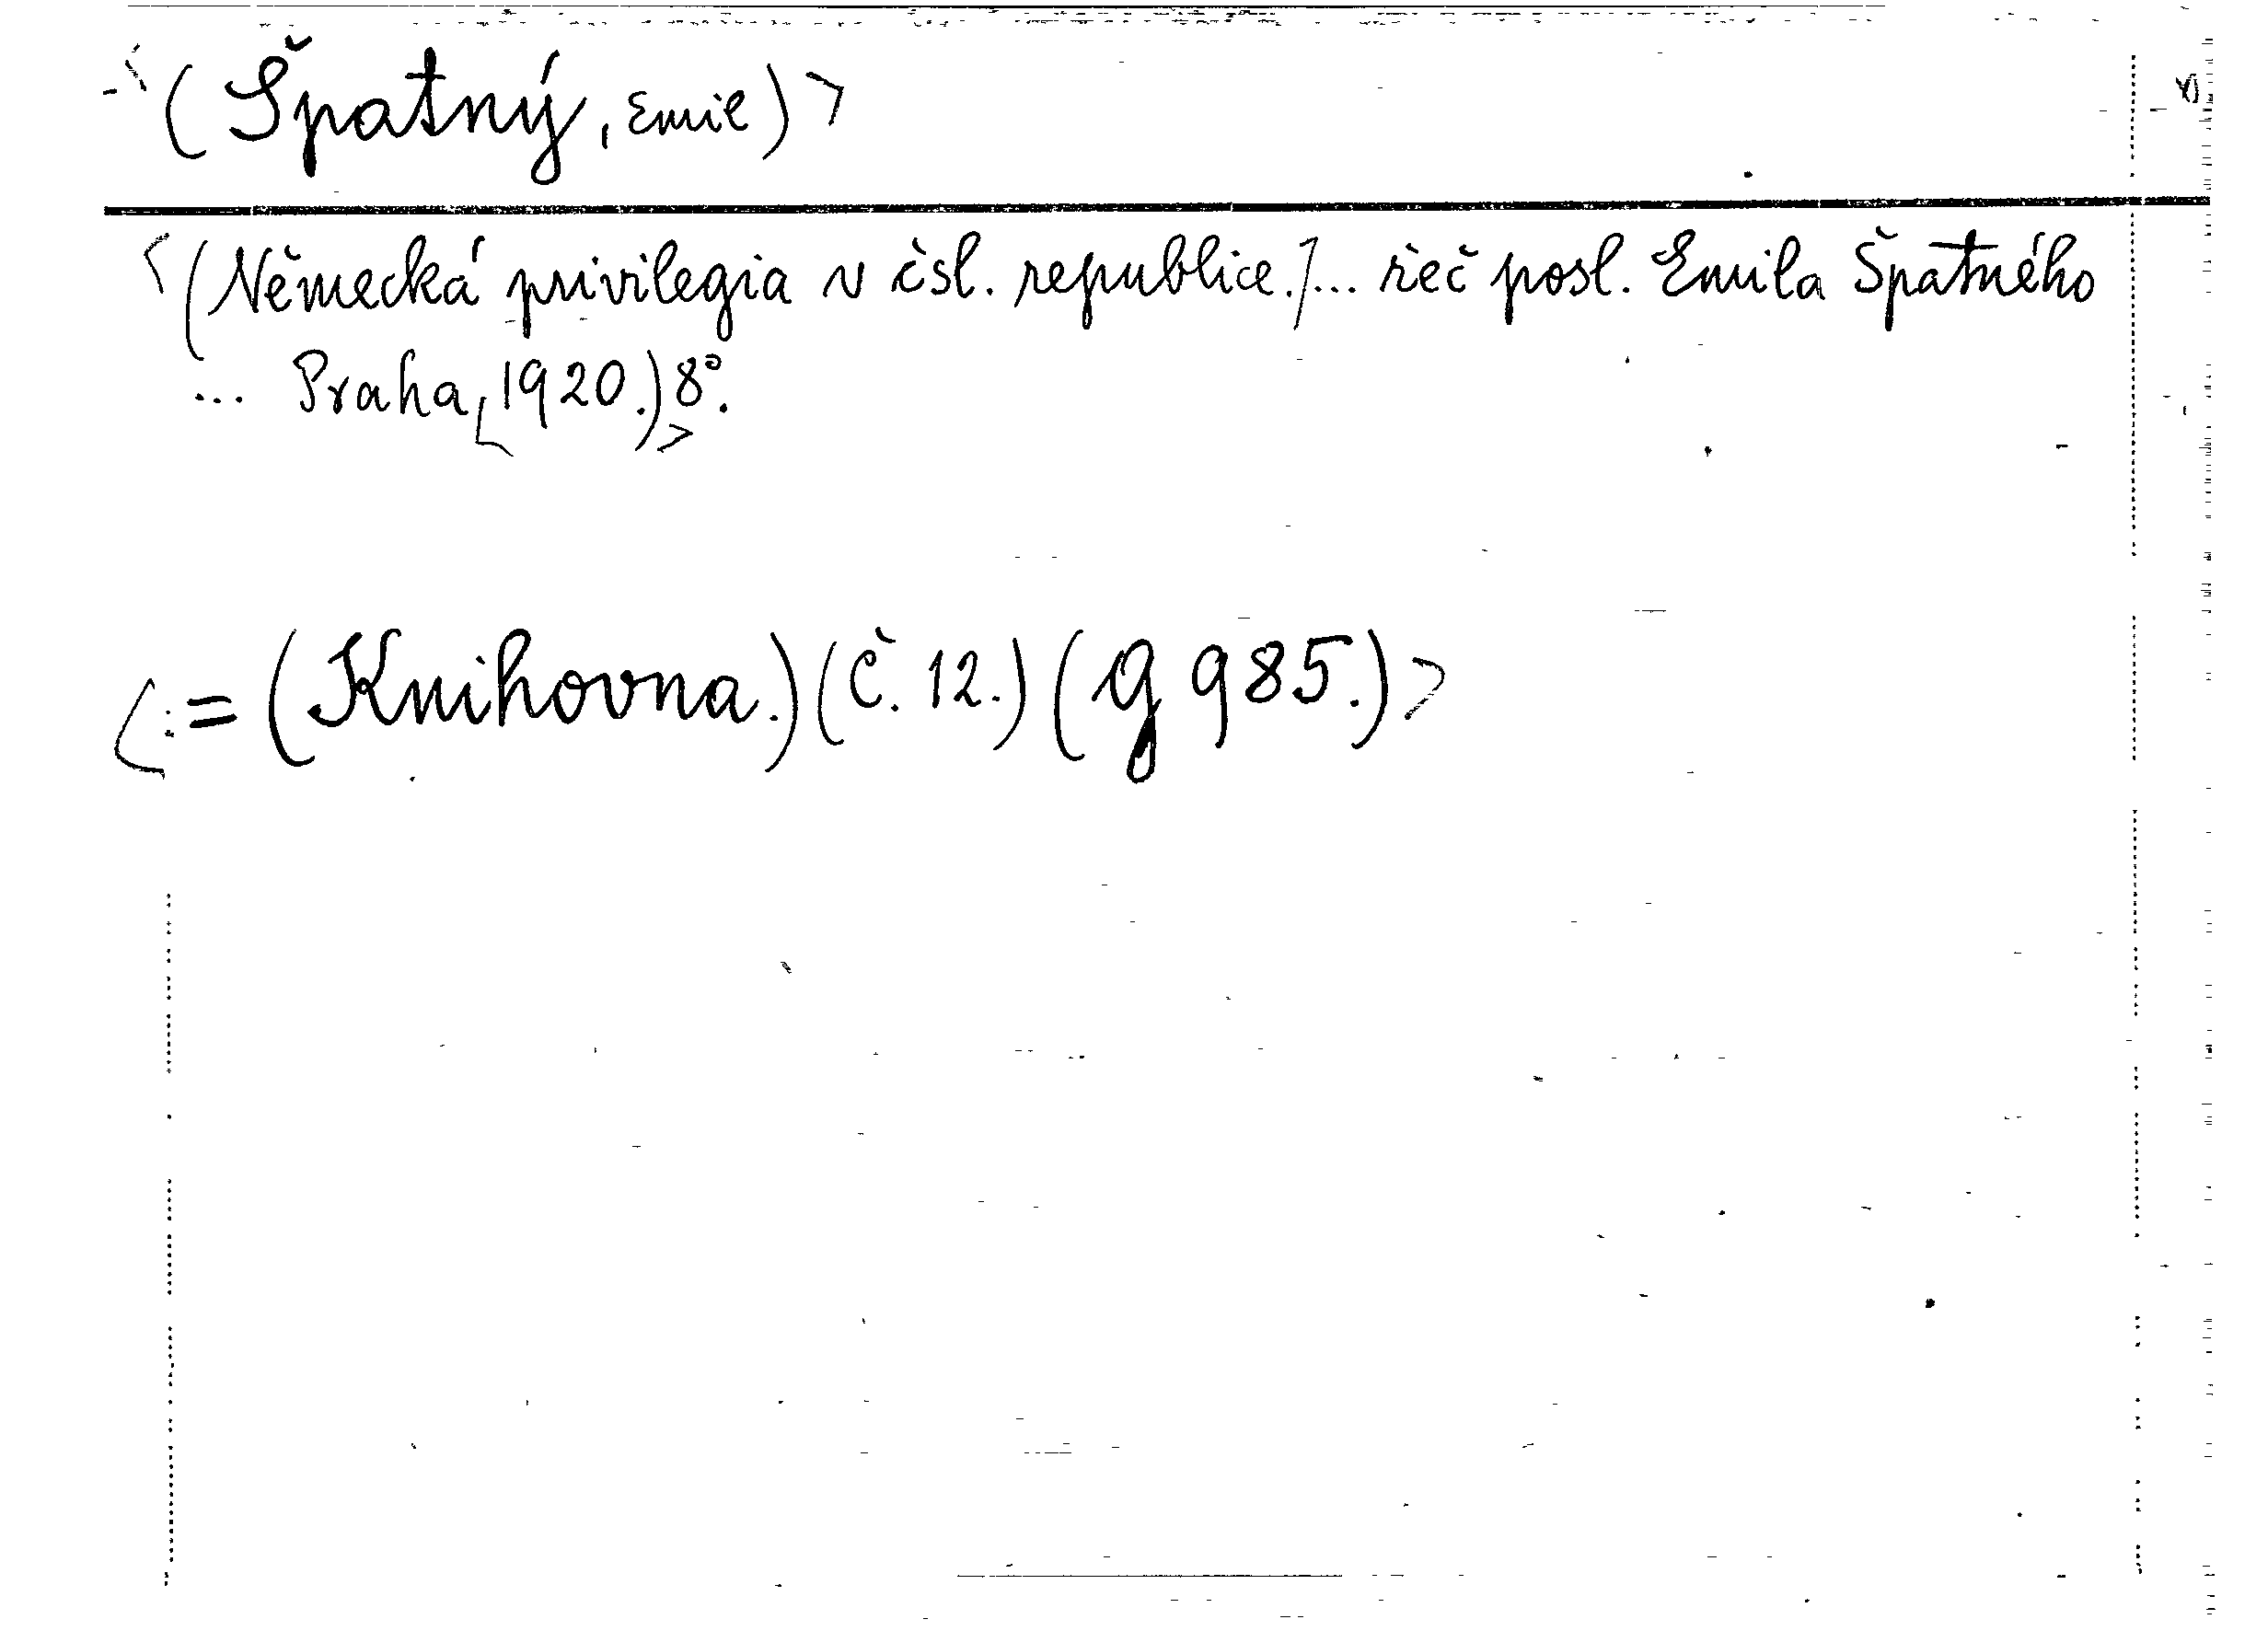 <(Špatný, Emil)>
<(Německá privilegia v čsl. republice.] ... řeč posl. Emila Špatného
... Praha, [1920.) 8°.>
<:= (Knihovna.) (Č. 12.) (G 985.)>